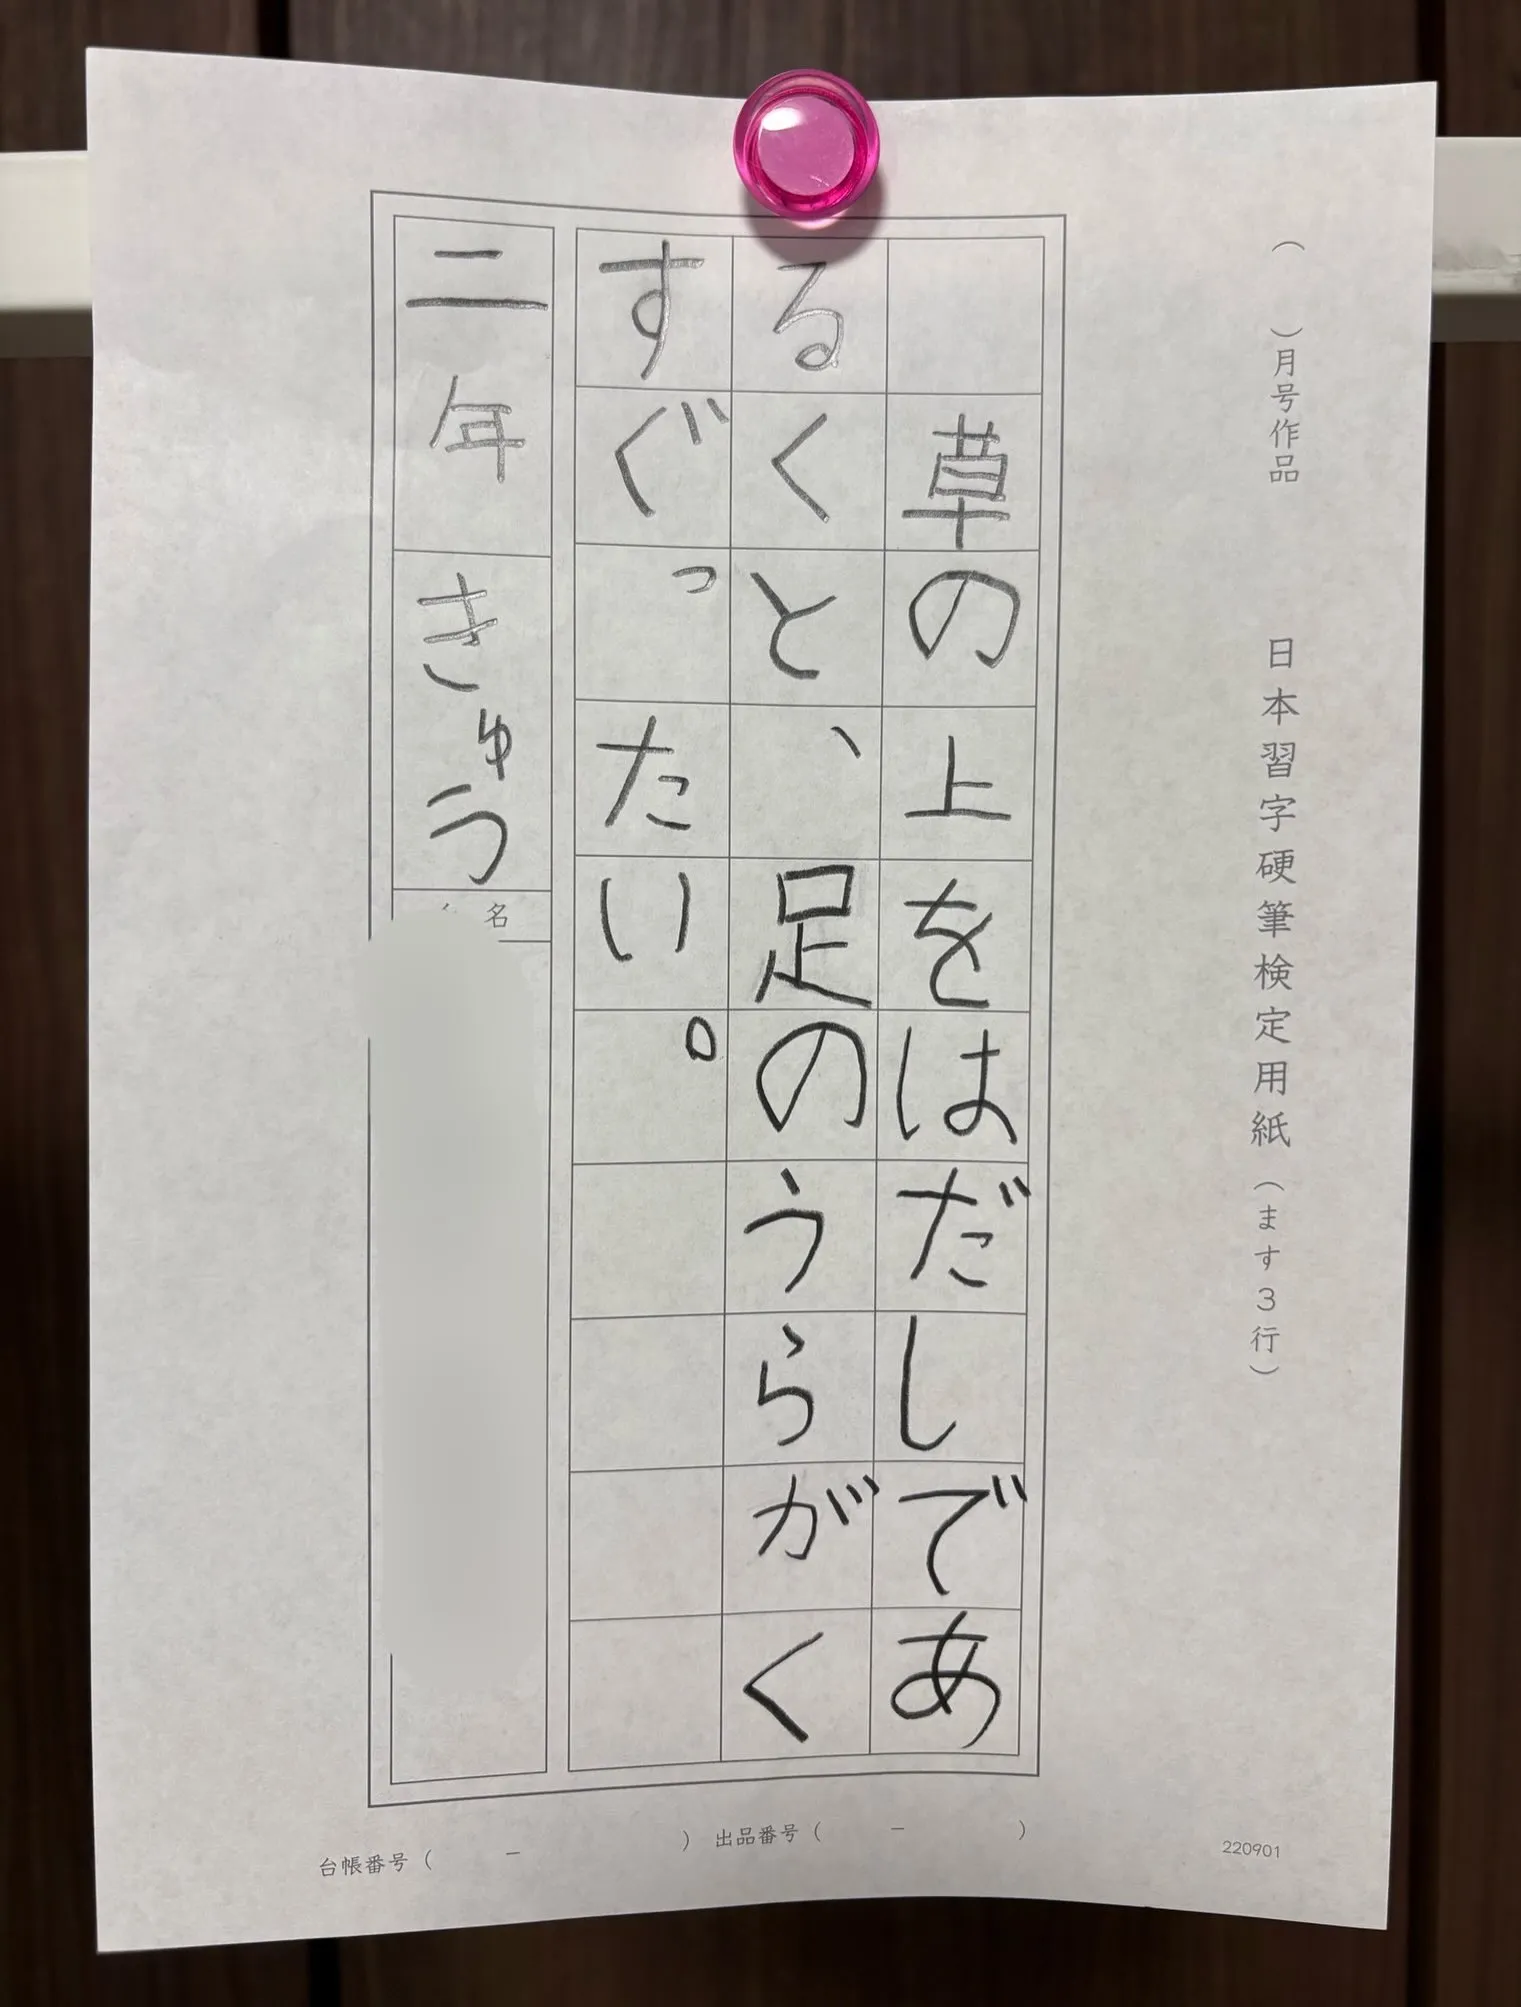 （　　）月号作品　　日本習字硬筆検定用紙（ます３行）
草の上をはだしであ
るくと、足のうらがく
すぐったい。
二年　きゅう
名
台帳番号（　　－　　）出品番号（　　－　　）
220901